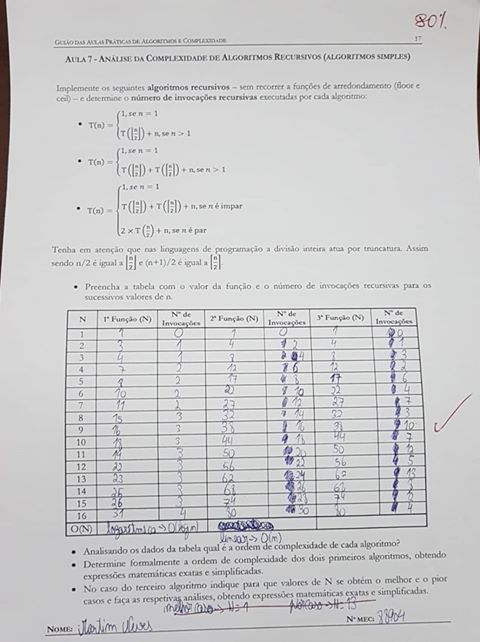 80%
GUIÃO DAS AULAS PRÁTICAS DE ALGORITMOS E COMPLEXIDADE 17
AULA 7 - ANÁLISE DA COMPLEXIDADE DE ALGORITMOS RECURSIVOS (ALGORITMOS SIMPLES)
Implemente os seguintes algoritmos recursivos – sem recorrer a funções de arredondamento (floor e
ceil) – e determine o número de invocações recursivas executadas por cada algoritmo:
• T(n) = { 1, se n = 1
T(⌊n/2⌋) + n, se n > 1
• T(n) = { 1, se n = 1
T(⌊n/2⌋) + T(⌈n/2⌉) + n, se n > 1
• T(n) = { 1, se n = 1
T(⌊n/2⌋) + T(⌈n/2⌉) + n, se n é impar
2 × T(n/2) + n, se n é par
Tenha em atenção que nas linguagens de programação a divisão inteira atua por truncatura. Assim
sendo n/2 é igual a ⌊n/2⌋ e (n+1)/2 é igual a ⌈n/2⌉
• Preencha a tabela com o valor da função e o número de invocações recursivas para os
sucessivos valores de n.
N 1ª Função (N) Nº de Invocações 2ª Função (N) Nº de Invocações 3ª Função (N) Nº de Invocações
1 1 0 1 0 1 0
2 3 1 4 2 4 1
3 4 1 8 4 8 3
4 7 2 12 6 12 2
5 8 2 17 8 17 6
6 10 2 22 10 22 4
7 11 2 27 12 27 7
8 15 3 32 14 32 3
9 16 3 16 10
10 18 3 44 18 44 7
11 3 50 20 50
12 22 3 56 22 56 5
13 23 3 62 24 62 13
14 3 26
15 26 3 74 28 74
16 31 4 30 4
O(N) logarítmica → O(log n)
linear → O(n)
• Analisando os dados da tabela qual é a ordem de complexidade de cada algoritmo?
• Determine formalmente a ordem de complexidade dos dois primeiros algoritmos, obtendo
expressões matemáticas exatas e simplificadas.
• No caso do terceiro algoritmo indique para que valores de N se obtém o melhor e o pior
casos e faça as respetivas análises, obtendo expressões matemáticas exatas e simplificadas.
melhor caso → N=1 Pior caso → N=13
NOME: Martim Nº MEC: 88904